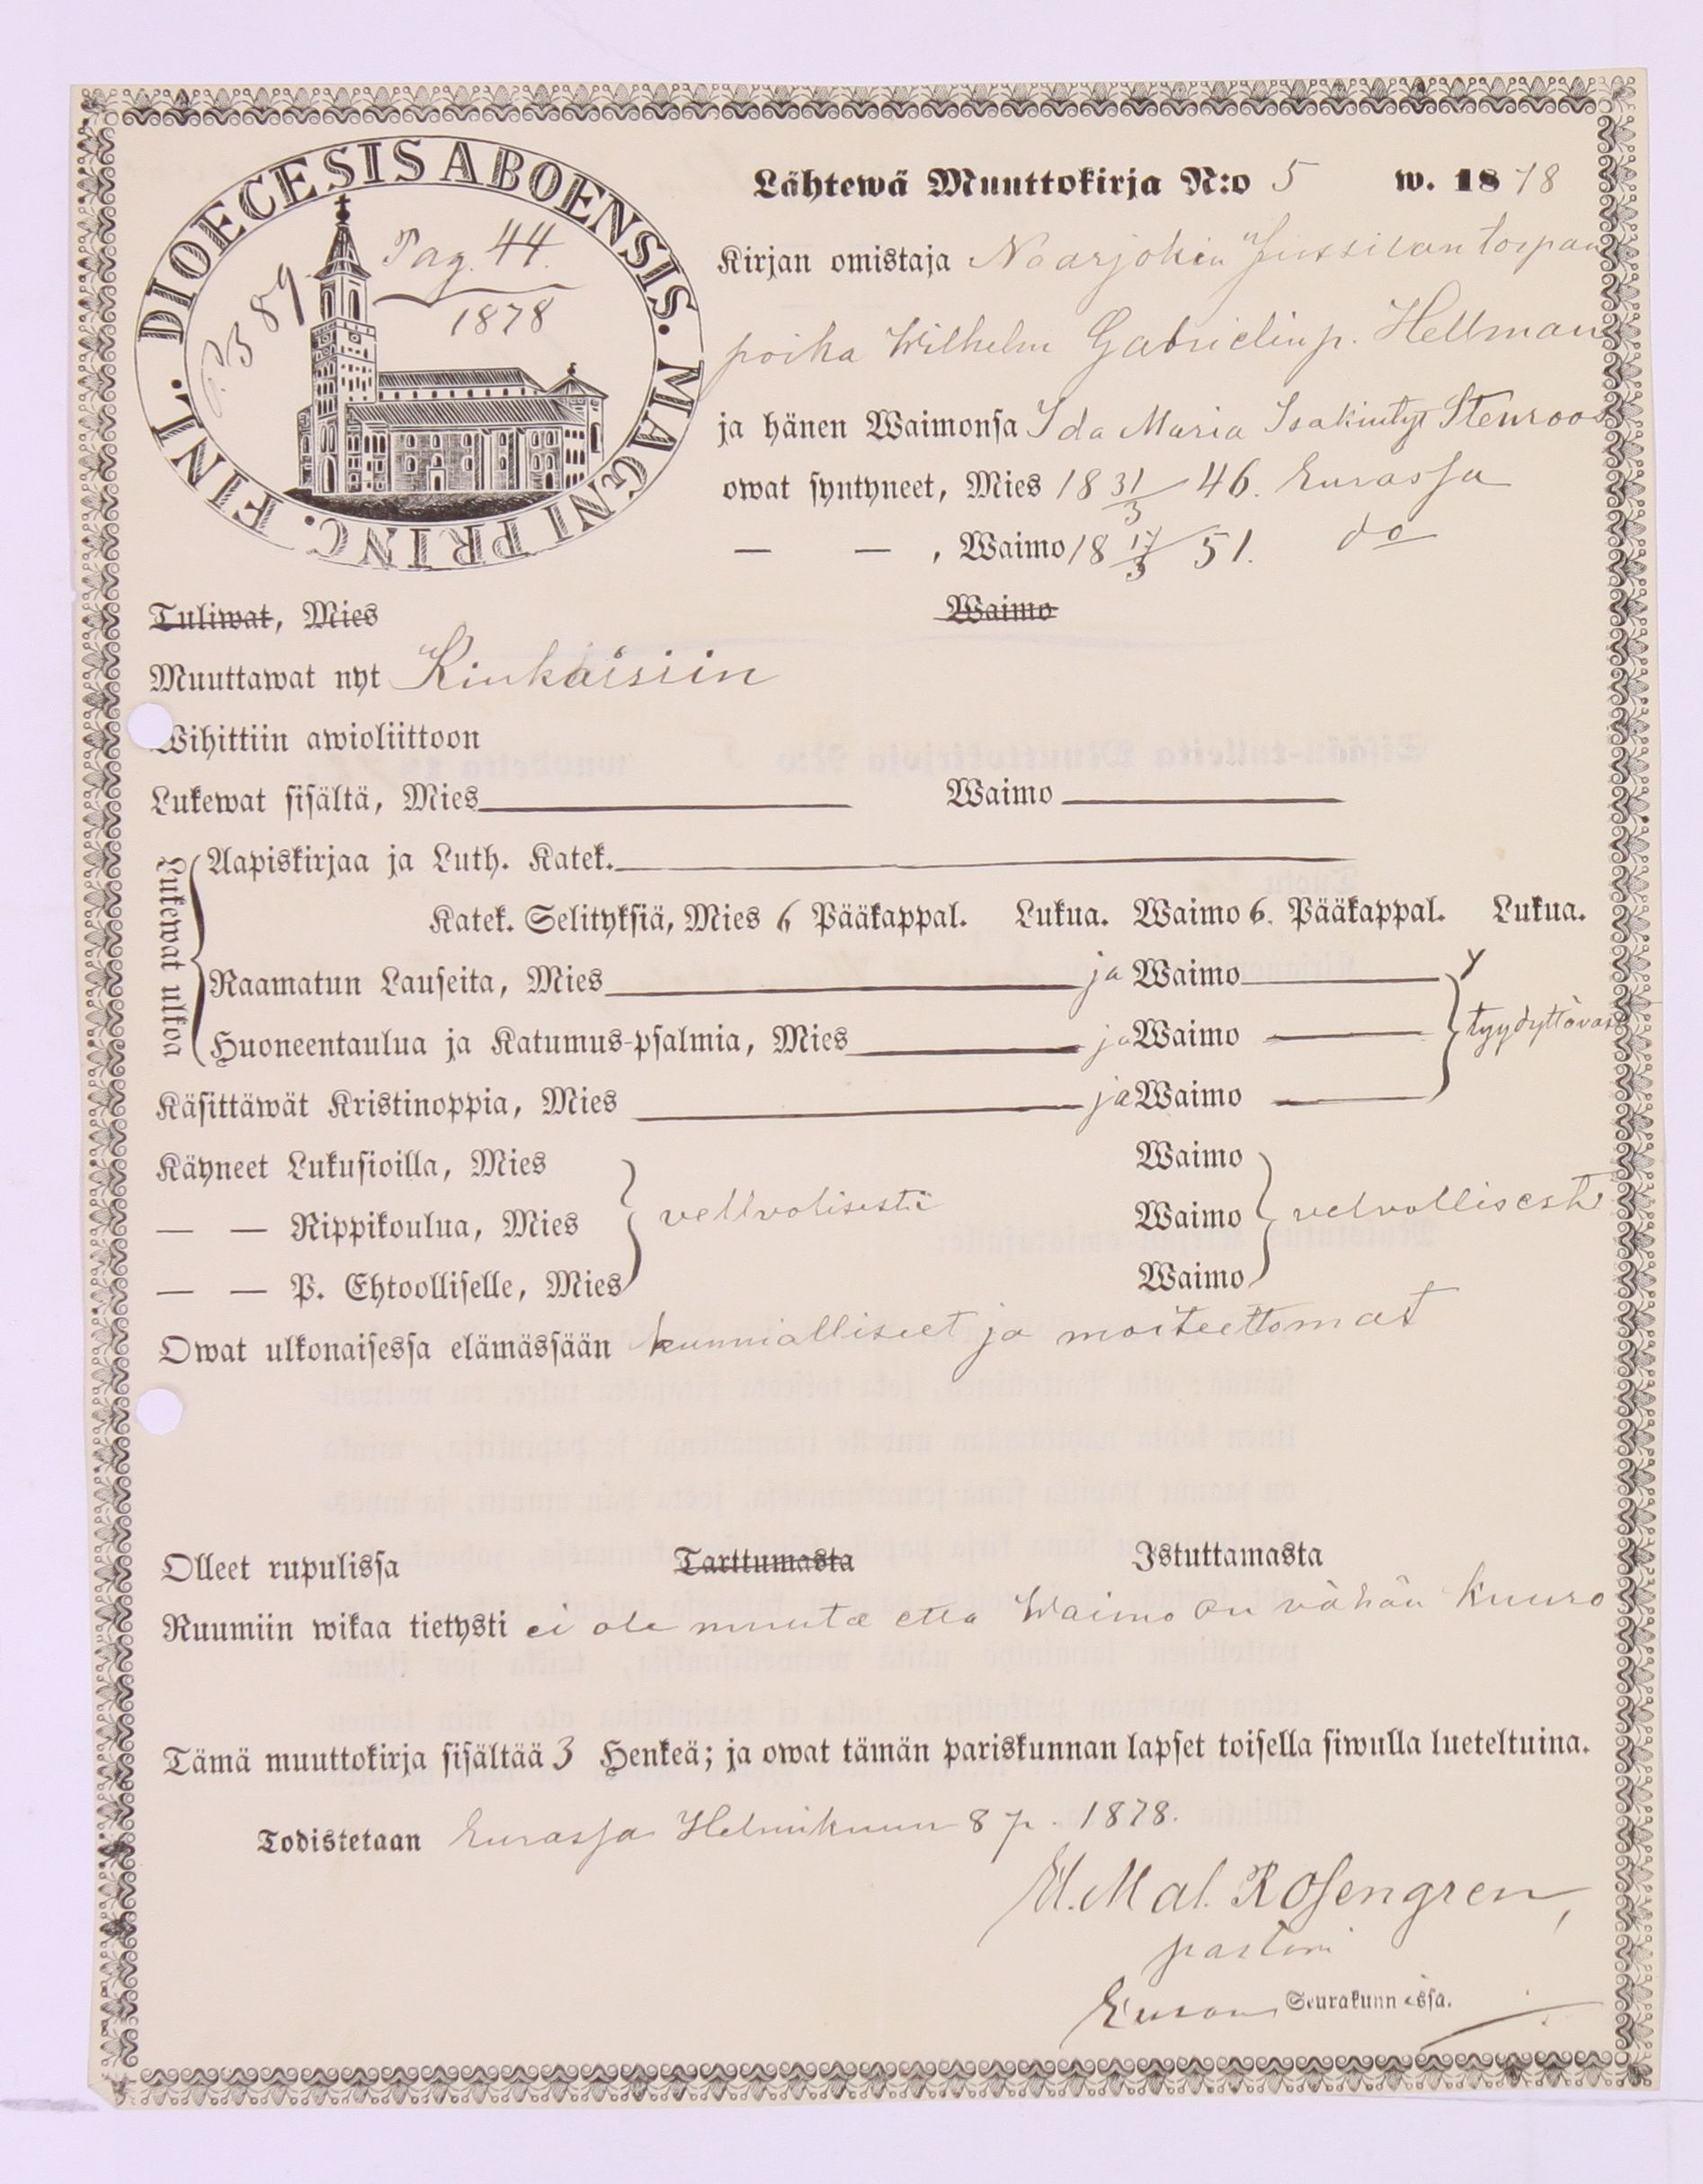 DIOECESIS ABOENSIS. MAGNI PRINC. FINL.
Pag. 44.
1878
89
Lähtewä Muuttokirja N:o 5 w. 1878
Kirjan omistaja Naarjokin Jussilan torpan
poika Wilhelm Gabrielinp. Hellman
ja hänen Waimonsa Ida Maria Isakintyt Stenroos
owat syntyneet, Mies 18 31/3 46. Eurassa
— — , Waimo 18 17/3 51. do
Tuliwat, Mies Waimo
Muuttawat nyt Kiukaisiin
Wihittiin awioliittoon
Lukewat sisältä, Mies Waimo
Lukewat ulkoa
Aapiskirjaa ja Luth. Katek.
Katek. Selityksiä, Mies 6 Pääkappal. Lukua. Waimo 6. Pääkappal. Lukua.
Raamatun Lauseita, Mies ja Waimo
Huoneentaulua ja Katumus-psalmia, Mies ja Waimo tyydyttäväst
Käsittäwät Kristinoppia, Mies ja Waimo
Käyneet Lukusioilla, Mies Waimo
— — Rippikoulua, Mies vellvolisesti Waimo velvollisesti
— — P. Ehtoolliselle, Mies Waimo
Owat ulkonaisessa elämässään kunnialliset ja moiteettomat
Olleet rupulissa Tarttumasta Istuttamasta
Ruumiin wikaa tietysti ei ole muuta etta Waimo on vähän kuuro
Tämä muuttokirja sisältää 3 Henkeä; ja owat tämän pariskunnan lapset toisella siwulla lueteltuina.
Todistetaan Eurassa Helmikuun 8 p. 1878.
M. Mal. Rosengren,
pastori
Euran Seurakunnassa.